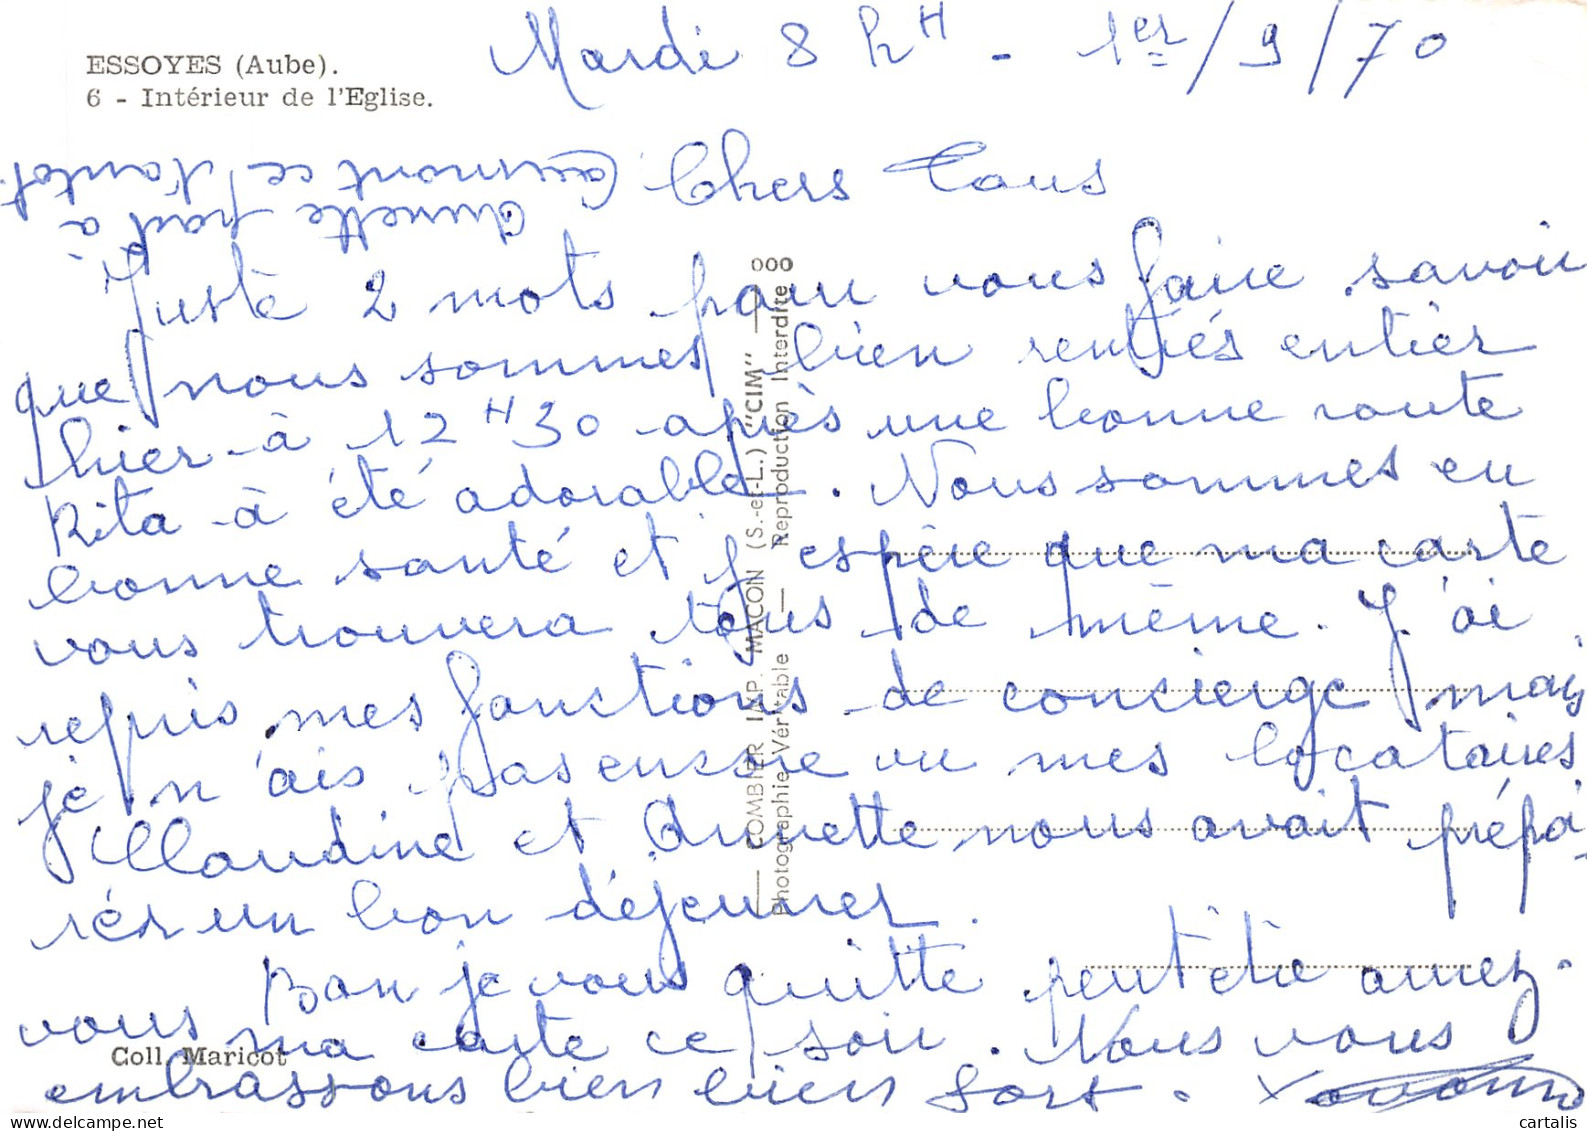 ESSOYES (Aube).
6 - Intérieur de l'Eglise.
Mardi 8 h H - 1er/9/70
Chers Tous
Annette part à
Caumont ce tantot.
Juste 2 mots pour vous faire savoir
que nous sommes bien rentrés entier
hier à 12 H 30 après une bonne route
Rita à été adorable. Nous sommes en
bonne santé et j espère que ma carte
vous trouvera tous de même. J'ai
repris mes fonctions de concierge mais
je n'ais pas encore vu mes locataires
Claudine et Annette nous avait prépa-
rér un bon déjeuner.
Bon je vous quitte peut être aurez-
vous ma carte ce soir. Nous vous
embrassons bien bien fort.
COMBIER IMP. MACON (S.-et-L.) "CIM"
Photographie Véritable — Reproduction Interdite
Coll. Maricot
delcampe.net
cartalis